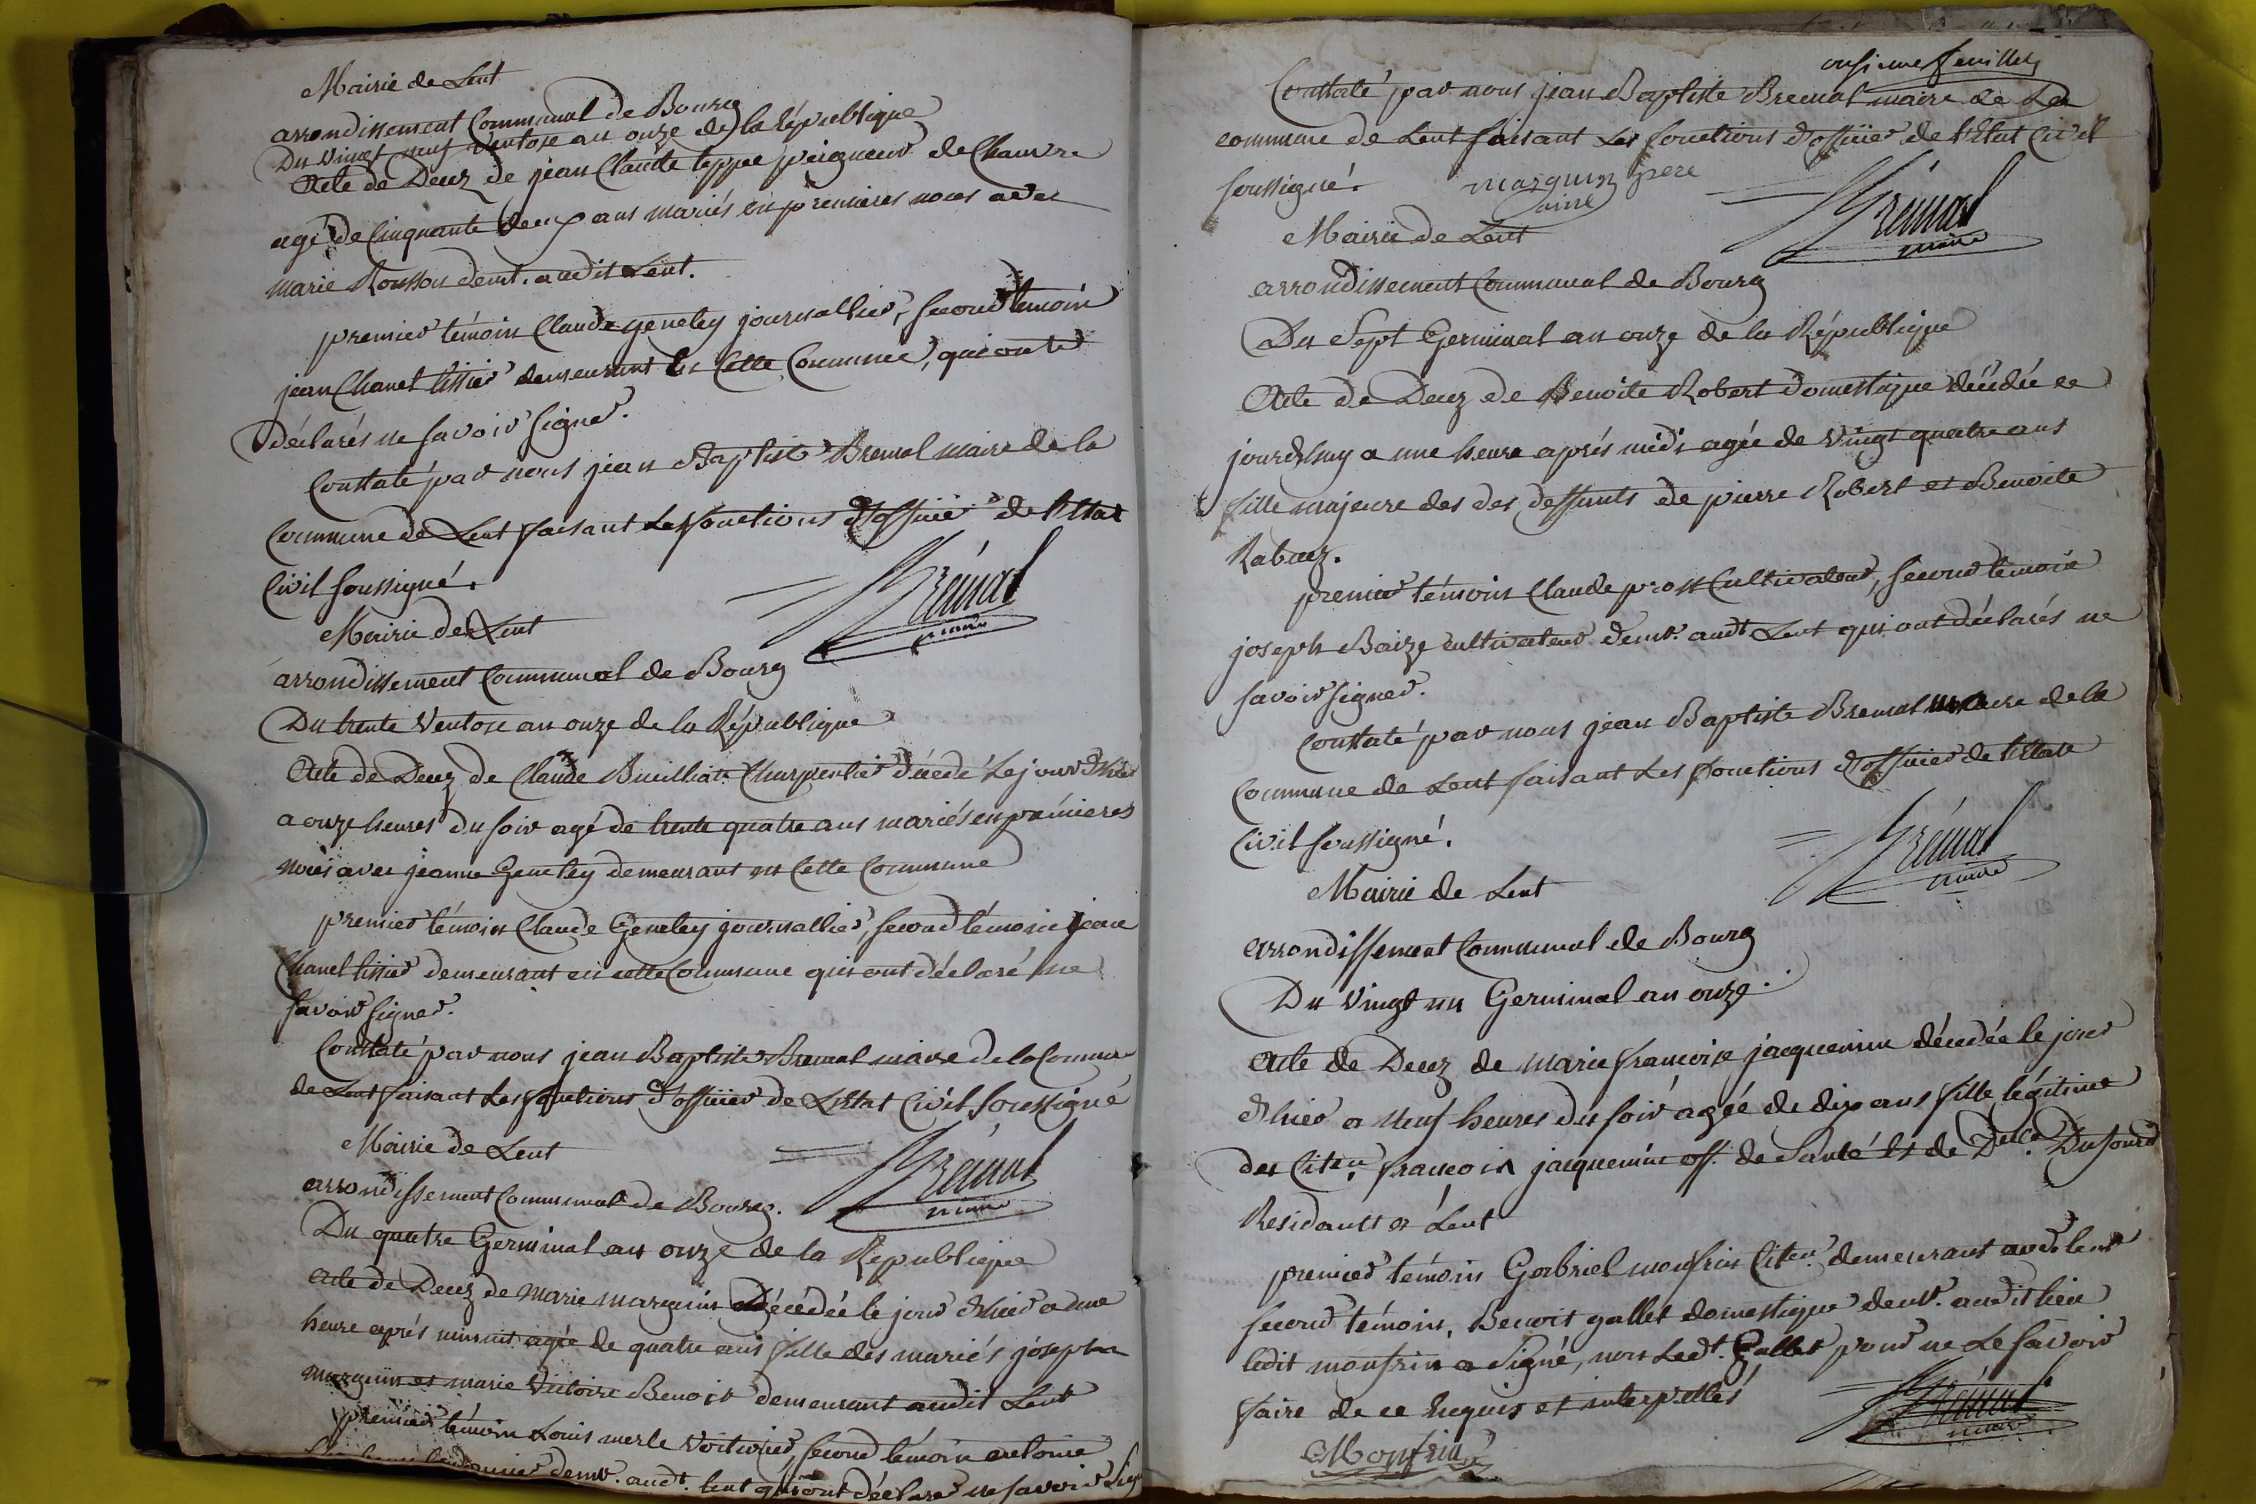 Mairie de Lent
arrondissement Communal de Bourg
Du Vingt neuf Ventose an onze de la République
Acte de Decez de jean Claude teppe peigneur de Chanvre
agé de Cinquante deux ans mariés en premieres noces avec
marie Rousson demt. audit Lent.
premier témoin Claude genetey journallier, second temoin
jean Chanel tissier demeurant en Cette Commune, qui ont
déclarés ne savoir signer.
Constaté par nous jean Baptiste Bremal maire de la
Commune de Lent faisant Les fonctions d'officier de l'Etat
Civil soussigné.
Brémal
maire
Mairie de Lent
arrondissement Communal de Bourg
Du trente Ventose an onze de la République
Acte de Decez de Claude Buillat Charpentier décédé Le jour d'hier
a onze heures du soir agé de trente quatre ans mariés en premieres
noces avec jeanne Genetey demeurant en Cette Commune
premier témoin Claude Genetey journallier, second témoin jean
Chanel tissier demeurant en cette Commune qui ont déclaré ne
savoir signer.
Constaté par nous jean Baptiste Bremal maire de la Commune
de Lent faisant Les fonctions d'officier de L'Etat Civil soussigné
Brémal
maire
Mairie de Lent
arrondissement Communal de Bourg.
Du quatre Germinal an onze de la République
Acte de Decez de marie marguin Décédée le jour d'hier a une
heure aprés minuit agée de quatre ans fille des mariés joseph
marguin et marie Victoire Benoit demeurant audit Lent
premier témoin Louis merle Voiturier, second témoin antoine
demt. audt. Lent qui ont déclaré ne savoir sign
onsieme feuillet
Constaté par nous jean Baptiste Bremal maire de La
commune de Lent faisant Les fonctions d'officier de l'Etat Civil
soussigné.
marguin pere
Brémal
maire
Mairie de Lent
arrondissement Communal de Bourg
Du Sept Germinal an onze de la République
Acte de Decez de Benoite Robert domestique décédée ce
jourd'huy a une heure aprés midi agée de Vingt quatre ans
fille majeure des des deffunts de pierre Robert et Benoite
premier témoin Claude prost Cultivateur, second témoin
joseph Baize cultivateur demt. audt Lent qui ont déclarés ne
savoir signer.
Constaté par nous jean Baptiste Bremal maire de la
Commune de Lent faisant Les fonctions d'officier de l'Etat
Civil soussigné.
Brémal
maire
Mairie de Lent
arrondissement Communal de Bourg
Du Vingt un Germinal an onze.
Acte de Decez de marie françoise jacquemin décédée le jour
d'hier a neuf heures du soir agée de dix ans fille légitime
des Citen. françois jacquemin off. de Santé et de Delle. Dufour
Residants a Lent
premier témoin Gabriel monfrin Citen. demeurant aud. lent
second témoin, Benoit gallet domestique demt. audit lieu
ledit monfrin a signé, non Ledt. Gallet pour ne Le savoir
faire de ce Requis et interpellés
Brémal
maire
Monfrin